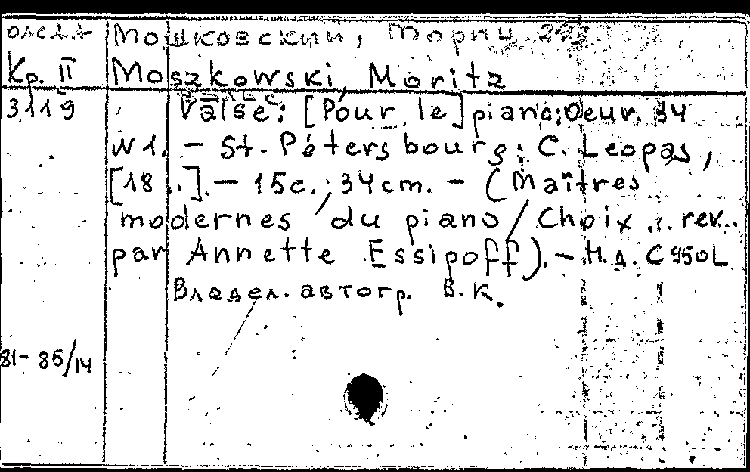 Мошковский, Мориц
Кр. II Moszkowski, Moritz
3119 Valse: [Pour le] piano; Oeur. 34
N 1. – St. Pétersbourg: C. Leopas,
[18 ..]. – 15c.; 34cm. – (Maîtres
modernes du piano / Choix .. rev.
par Annette Essipoff). – Н.д. C 950L
Владел. автогр. В.К.
81-85/14